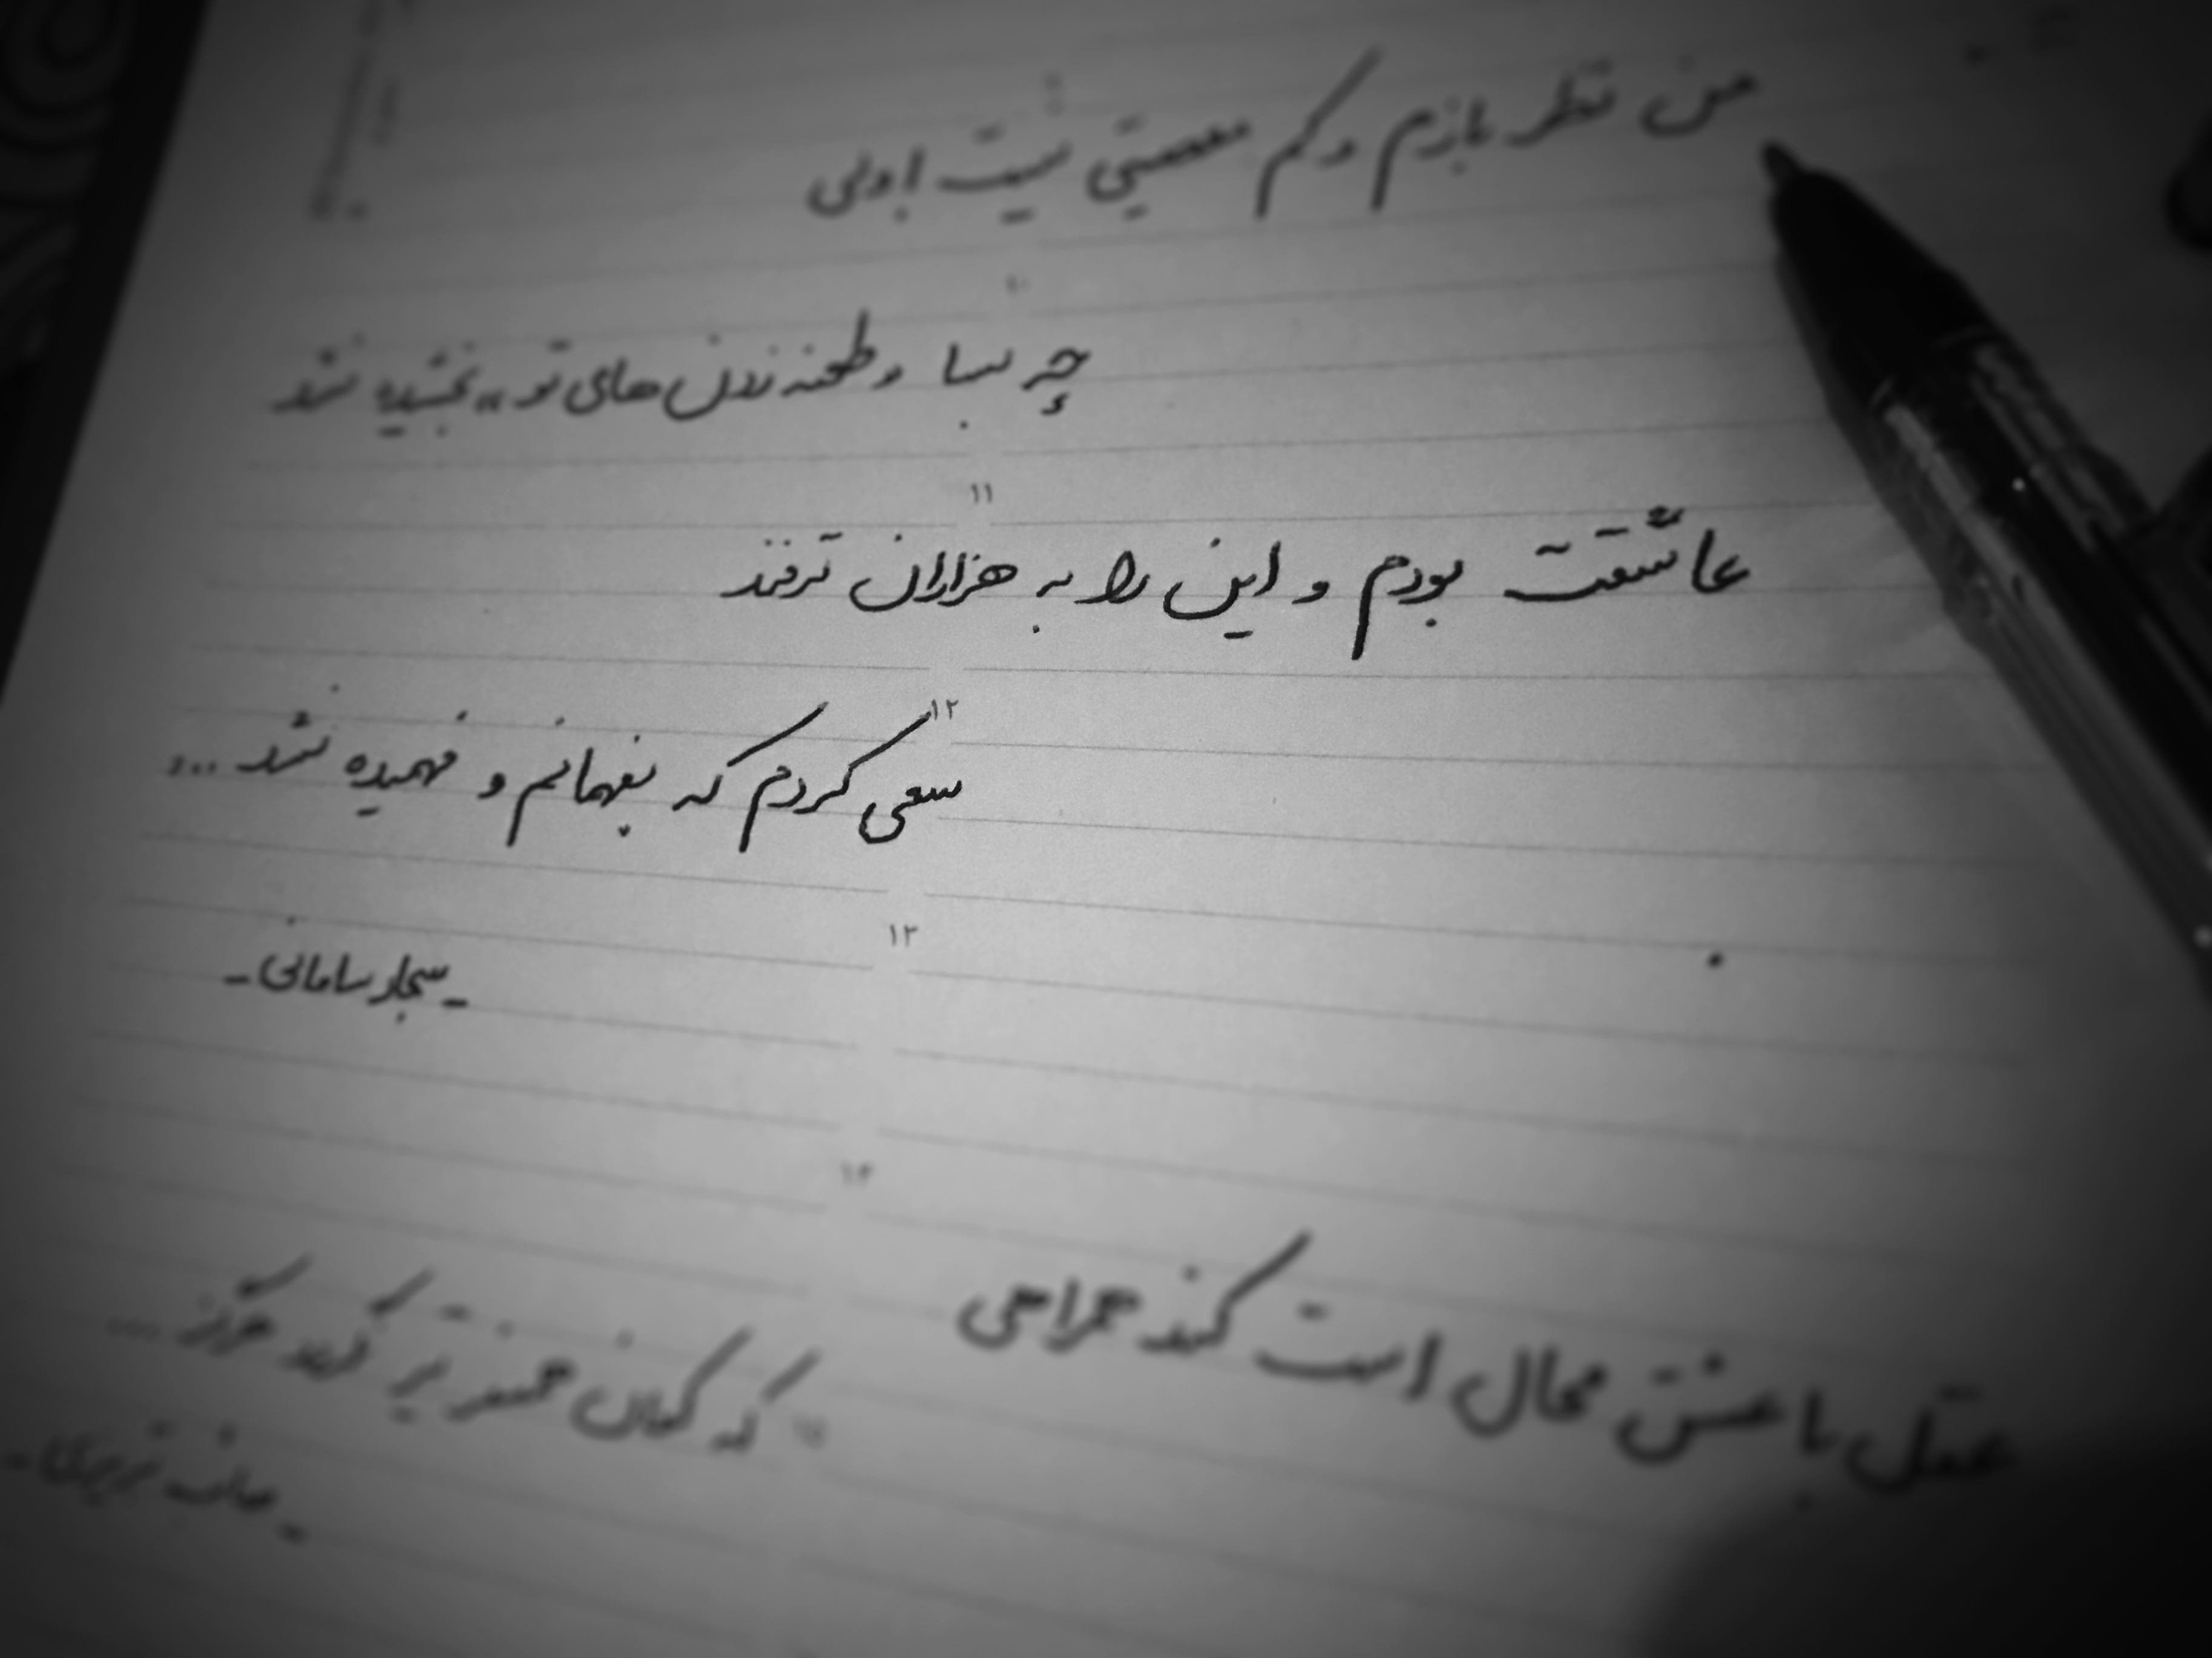 من نظر بازم و کم معصیتی نیست ولی
۱۰
چه بسا طعنه زدن های تو بخشیده نشد
۱۱
عاشقت بودم و این را به هزاران ترفند
۱۲
سعی کردم که بفهمانم و فهمیده نشد ...
۱۳
- سجاد سامانی -
۱۴
عقل با عشق محال است کند همراهی
که کمان همسفر تیر نگردد هرگز ...
- صائب تبریزی -